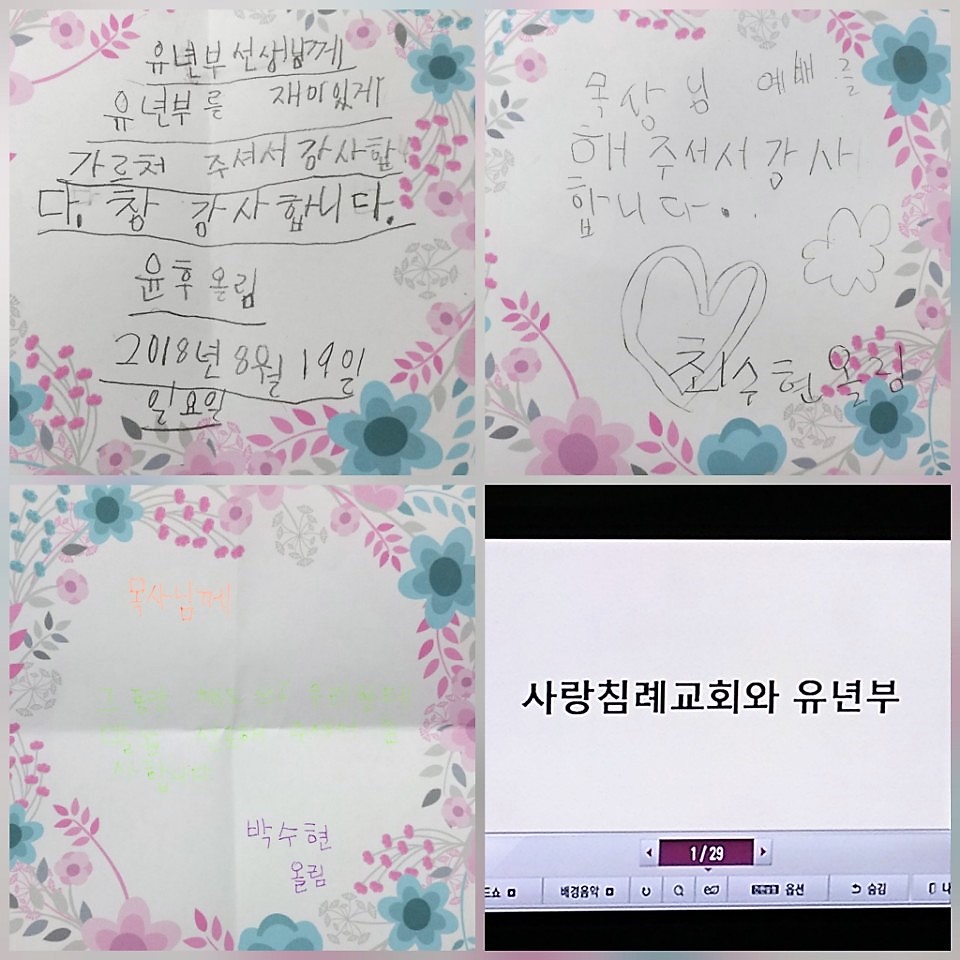 유년부선생님께
유년부를 재미있게
가르처 주셔서 감사합
다. 참 감사합니다.
윤후 올림
2018년 8월 19일
일요일
목상님 예배를
해주셔서 감사
합니다..
최수현올림
목사님께
박수현
올림
사랑침례교회와 유년부
1/29
드쇼
배경음악
옵션
숨김